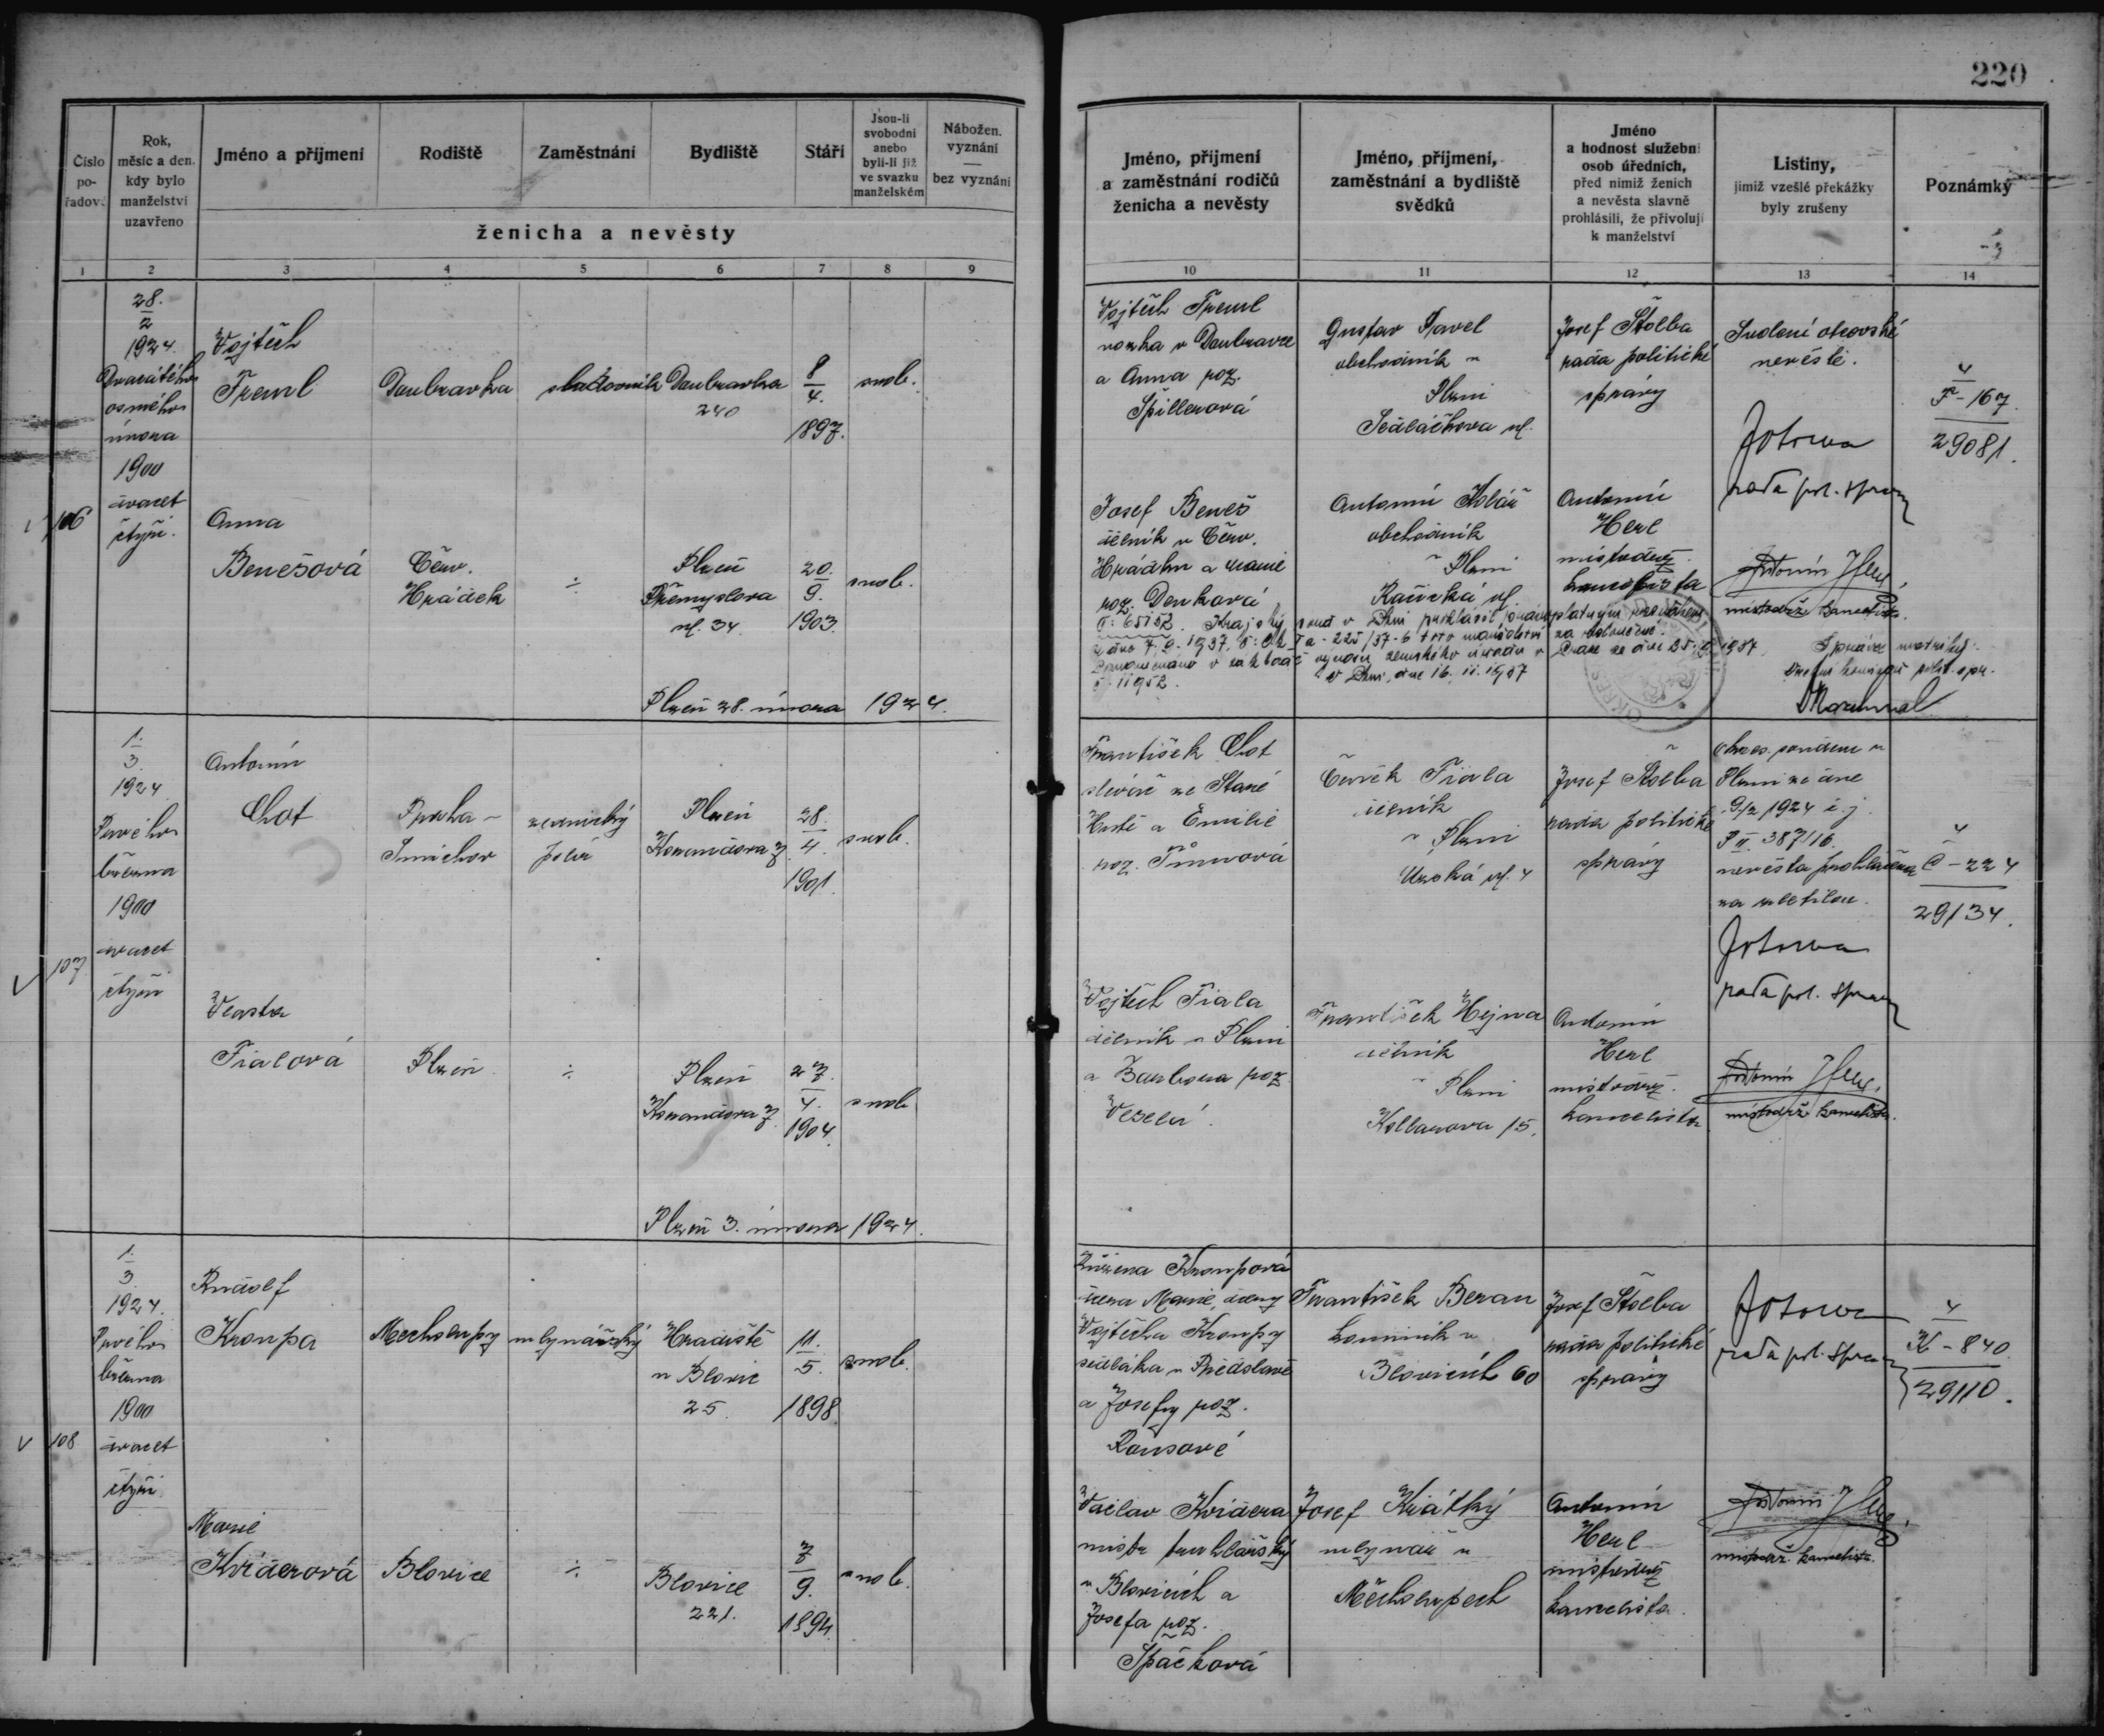 220
Číslo
po-
řadov.
Rok,
měsíc a den.
kdy bylo
manželství
uzavřeno
Jméno a příjmení
Rodiště
Zaměstnání
Bydliště
Stáří
Jsou-li
svobodni
anebo
byli-li již
ve svazku
manželském
Nábožen.
vyznání
—
bez vyznání
ženicha a nevěsty
Jméno, příjmení
a zaměstnání rodičů
ženicha a nevěsty
Jméno, příjmení,
zaměstnání a bydliště
svědků
Jméno
a hodnost služební
osob úředních,
před nimiž ženich
a nevěsta slavně
prohlásili, že přivolují
k manželství
Listiny,
jimiž vzešlé překážky
byly zrušeny
Poznámky
1 2 3 4 5 6 7 8 9 10 11 12 13 14
106
28.
2
1924.
Dvacátého
osmého
února
1900
dvacet
čtyři.
Vojtěch
Treml
Doubravka
Doubravka
240
8
4.
1897.
svob.
Anna
Benešová
Červ.
Hrádek
÷
Plzeň
Přemyslova
ul. 34.
20.
9.
1903.
svob.
Plzeň 28. února 1924.
Vojtěch Treml
v Doubravce
a Anna roz.
Špillerová
Gustav Pavel
obchodník v
Plzni
Sedláčkova ul.
Josef Štolba
rada politické
správy
Svolení otcovské
nevěstě.
rada pol. správy
4
T - 167.
29081.
Josef Beneš
dělník v Červ.
Hrádku a Marie
roz. Denková
Antonín Kolář
obchodník
v Plzni
ul.
Antonín
Herl
místodrž.
kancelista
Antonín Herl
místodrž. kancelista.
Č: 65152. Krajský soud v Plzni prohlásil
ze dne 7. 9. 1937, č: Ck Ia - 225/37-6 toto manželství za rozloučené.
výnosu zemského úřadu v Praze ze dne
č. 11952. V Plzni, dne 16. 11. 1937
Správce matriky:
107
1.
3.
1924
Prvého
března
1900
dvacet
čtyři
Antonín
Chot
Praha -
Smíchov
zednický
polír
Plzeň
Komandova 7.
28.
4.
1901.
svob.
Vlasta
Fialová
Plzeň
÷
Plzeň
Komandova 7.
27.
4.
1904.
svob.
Plzeň 3. února 1924.
František Chot
slévač ze Staré
Huti a Emilie
roz. Tůmová
Čeněk Fiala
dělník
v Plzni
Úzká ul. 4
Josef Štolba
rada politické
správy
Okres. soudem v
Plzni ze dne
9/2 1924 č. j.
P II. 387/16.
nevěsta prohlášena
za zletilou.
rada pol. správy
4
C - 224
29134.
Vojtěch Fiala
dělník v Plzni
a Barbora roz.
Veselá.
František Hejna
dělník
v Plzni
Kollarova 15.
Antonín
Herl
místodrž.
kancelista
Antonín Herl.
místodrž. kancelista.
108
1.
3.
1924.
Prvého
března
1900
dvacet
čtyři.
Rudolf
Kroupa
Mecholupy
mlynářský
Hradiště
u Blovic
25.
11.
5.
1898.
svob.
Marie
Kviderová
Blovice
÷
Blovice
221.
7
9.
1894.
svob.
Růžena Kroupová
dcera Marie, dcery
Vojtěcha Kroupy
sedláka v Předslavi
a Josefy roz.
Rousové
František Beran
kominík v
Blovicích 60
Josef Štolba
rada politické
správy
rada pol. správy
4
K - 840.
29110.
Václav Kvidera
mistr truhlářský
v Blovicích a
Josefa roz.
Špačková
Josef Krátký
mlynář v
Měcholupech
Antonín
Herl
místodrž.
kancelista.
Antonín Herl
místodrž. kancelista.